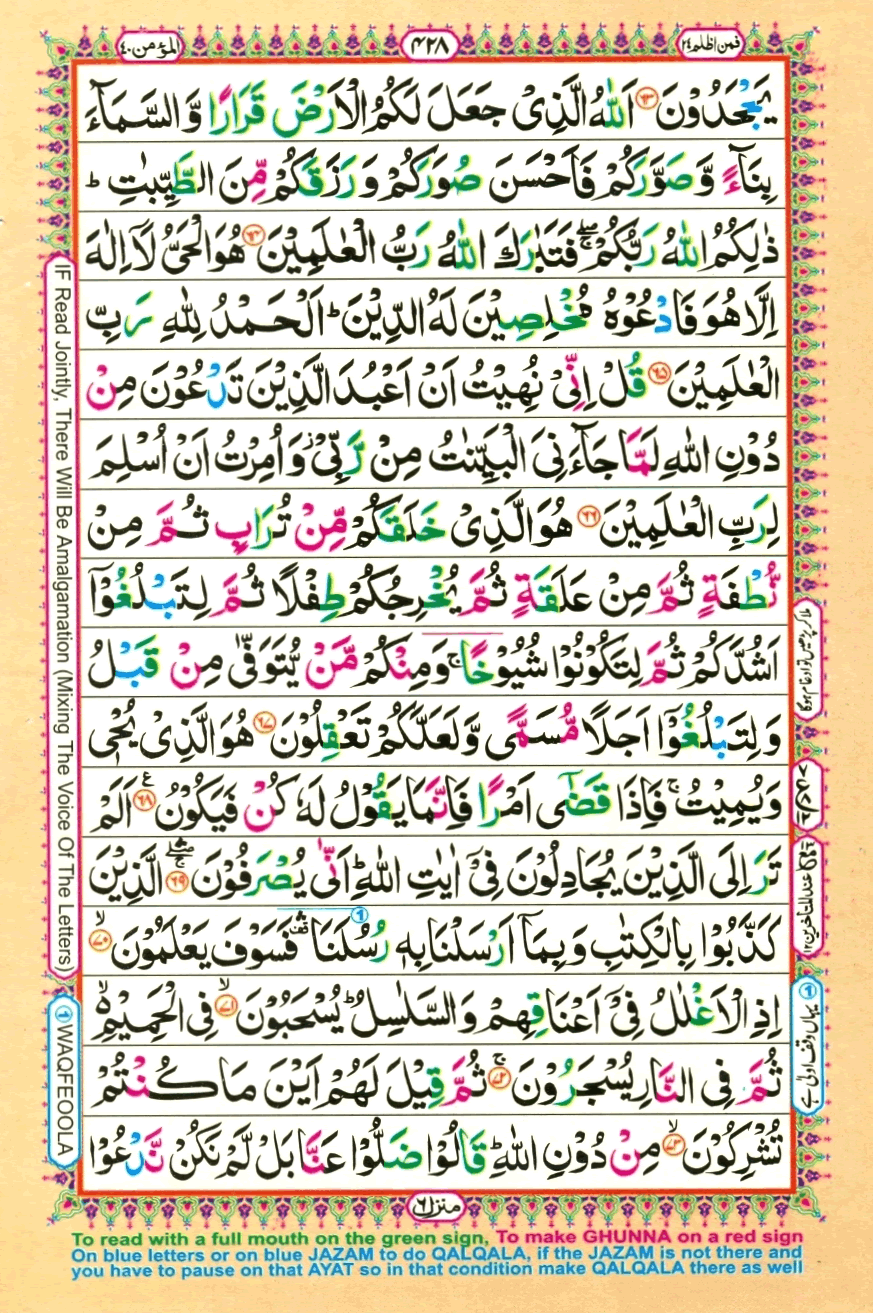 فمن اظلم ٢٤
٤٢٨
المؤمن ٤٠
يَجْحَدُوْنَ ﴿٦٣﴾ اَللّٰهُ الَّذِىْ جَعَلَ لَكُمُ الْاَرْضَ قَرَارًا وَّ السَّمَآءَ
بِنَآءً وَّ صَوَّرَكُمْ فَاَحْسَنَ صُوَرَكُمْ وَ رَزَقَكُمْ مِّنَ الطَّيِّبٰتِ ؕ
ذٰلِكُمُ اللّٰهُ رَبُّكُمْ ۖۚ فَتَبٰرَكَ اللّٰهُ رَبُّ الْعٰلَمِيْنَ ﴿٦٤﴾ هُوَ الْحَىُّ لَاۤ اِلٰهَ
اِلَّا هُوَ فَادْعُوْهُ مُخْلِصِيْنَ لَهُ الدِّيْنَ ؕ اَلْحَمْدُ لِلّٰهِ رَبِّ
الْعٰلَمِيْنَ ﴿٦٥﴾ قُلْ اِنِّىْ نُهِيْتُ اَنْ اَعْبُدَ الَّذِيْنَ تَدْعُوْنَ مِنْ
دُوْنِ اللّٰهِ لَمَّا جَآءَنِىَ الْبَيِّنٰتُ مِنْ رَّبِّىْ ز وَ اُمِرْتُ اَنْ اُسْلِمَ
لِرَبِّ الْعٰلَمِيْنَ ﴿٦٦﴾ هُوَ الَّذِىْ خَلَقَكُمْ مِّنْ تُرَابٍ ثُمَّ مِنْ
نُّطْفَةٍ ثُمَّ مِنْ عَلَقَةٍ ثُمَّ يُخْرِجُكُمْ طِفْلًا ثُمَّ لِتَبْلُغُوْۤا
اَشُدَّكُمْ ثُمَّ لِتَكُوْنُوْا شُيُوْخًا ۚ وَمِنْكُمْ مَّنْ يُّتَوَفّٰى مِنْ قَبْلُ
وَ لِتَبْلُغُوْۤا اَجَلًا مُّسَمًّى وَّ لَعَلَّكُمْ تَعْقِلُوْنَ ﴿٦٧﴾ هُوَ الَّذِىْ يُحْىٖ
وَ يُمِيْتُ ۚ فَاِذَا قَضٰٓى اَمْرًا فَاِنَّمَا يَقُوْلُ لَهٗ كُنْ فَيَكُوْنُ ﴿٦٨﴾ ع اَلَمْ
تَرَ اِلَى الَّذِيْنَ يُجَادِلُوْنَ فِىْۤ اٰيٰتِ اللّٰهِ ؕ اَنّٰى يُصْرَفُوْنَ ﴿٦٩﴾ ۛۖۚ الَّذِيْنَ
كَذَّبُوْا بِالْكِتٰبِ وَ بِمَاۤ اَرْسَلْنَا بِهٖ رُسُلَنَا ۛ قف ① فَسَوْفَ يَعْلَمُوْنَ ۙ﴿٧٠﴾
اِذِ الْاَغْلٰلُ فِىْۤ اَعْنَاقِهِمْ وَ السَّلٰسِلُ ؕ يُسْحَبُوْنَ ۙ﴿٧١﴾ فِى الْحَمِيْمِ ۙ
ثُمَّ فِى النَّارِ يُسْجَرُوْنَ ۚ﴿٧٢﴾ ثُمَّ قِيْلَ لَهُمْ اَيْنَ مَا كُنْتُمْ
تُشْرِكُوْنَ ۙ﴿٧٣﴾ مِنْ دُوْنِ اللّٰهِ ؕ قَالُوْا ضَلُّوْا عَنَّا بَلْ لَّمْ نَكُنْ نَّدْعُوْا
منزل ٦
ملا کر پڑھیں تو ادغام ہوگا
عند المتاخرین ١٢
① یہاں وقف اولیٰ ہے
IF Read Jointly, There Will Be Amalgamation (Mixing The Voice Of The Letters)
① WAQFEOOLA
To read with a full mouth on the green sign, To make GHUNNA on a red sign
On blue letters or on blue JAZAM to do QALQALA, if the JAZAM is not there and
you have to pause on that AYAT so in that condition make QALQALA there as well